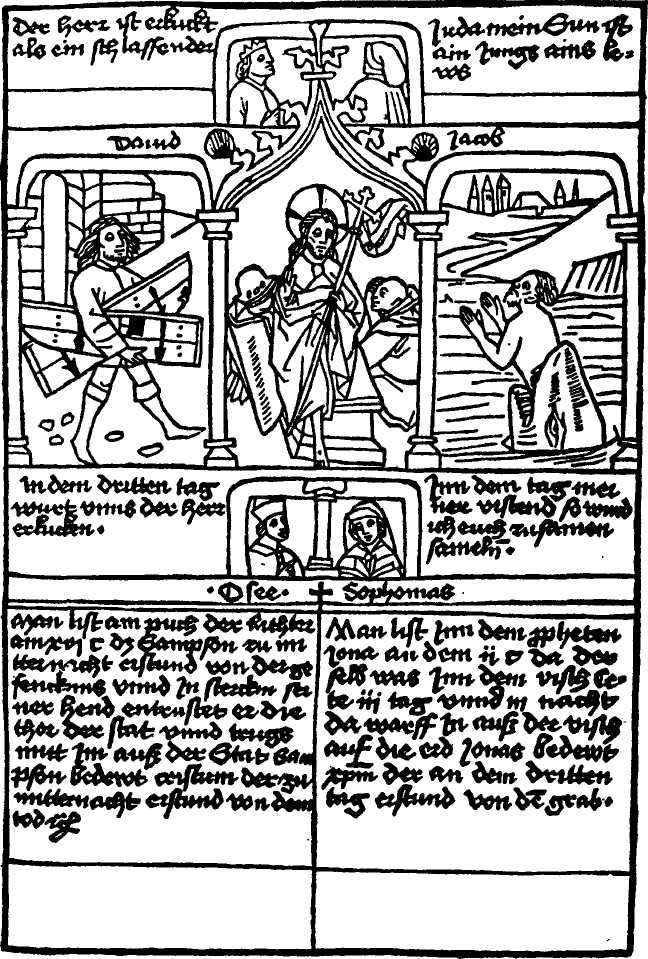 Der herr ist erkuckt
als ein schlaffender
Juda mein Sun ist
ain Jungs ains le-
ws
David
Jacob
In dem dritten tag
wurt vnns der herr
erkucken.
Inn dem tag mei
ner vrstend so wird
ich euch zusamen
sameln.
Osee.
Sophonias
Man list am puch der Richter
am xvi c dz Sampson zu mi
tternacht erstund von der ge
fencknus vnnd In sterckin sei
ner hend entrustet er die
thor der stat vnnd trugs
mitt Im auß der Stat Sam
pson bedewt cristum der zu
mitternacht erstund von dem
tod
Man list Inn dem ꝓpheten
Jona an dem ii c da der
selb was Inn dem visch Ce-
te iij tag vnnd iij nacht
da warff In auß der visch
auf die erd Jonas bedewt
xpm der an dem dritten
tag erstund von dē grab.